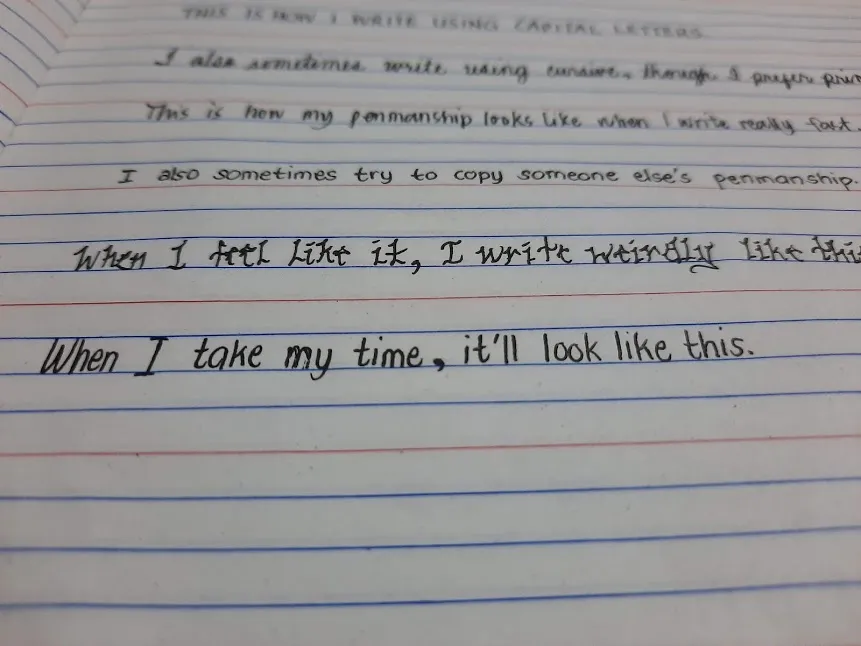 THIS IS HOW I WRITE USING CAPITAL LETTERS
I also sometimes write using cursive, though I prefer prin
This is how my penmanship looks like when I write really fast.
I also sometimes try to copy someone else's penmanship.
When I feel like it, I write weirdly like this
When I take my time, it'll look like this.